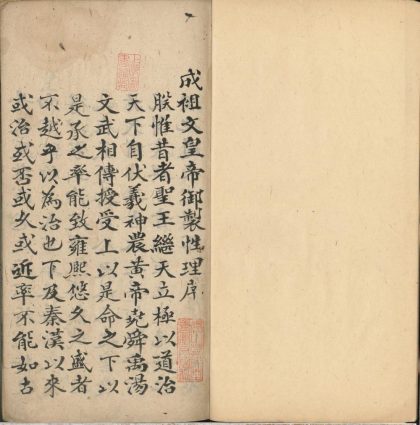 成祖文皇帝御製性理序
朕惟昔者聖王繼天立極以道治
天下自伏羲神農黃帝堯舜禹湯
文武相傳授受上以是命之下以
是承之率能致雍熙悠久之盛者
不越乎以為治也下及秦漢以來
或治或否或久或近率不能如古